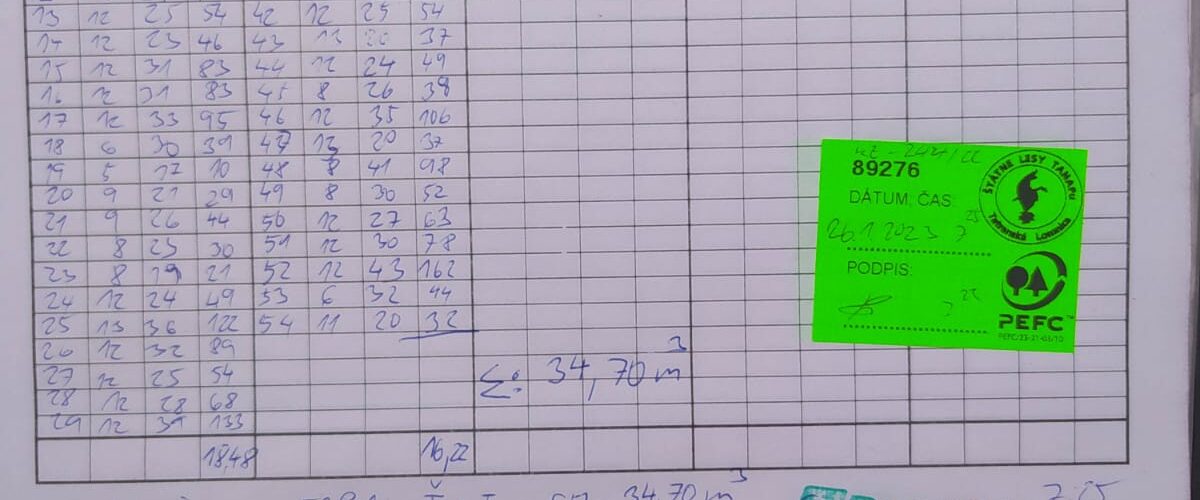 13 12 25 54 42 12 25 54
14 12 23 46 43 13 20 37
15 12 31 83 44 12 24 49
16 12 31 83 45 8 26 38
17 12 33 95 46 12 35 106
18 6 30 39 47 13 20 37
19 5 17 10 48 8 41 98
20 9 21 29 49 8 30 52
21 9 26 44 50 12 27 63
22 8 23 30 51 12 30 78
23 8 19 21 52 12 43 162
24 12 24 49 53 6 32 44
25 13 36 122 54 11 20 32
26 12 32 89
27 12 25 54
28 12 28 68
29 12 39 133
Σ: 34,70 m³
18,48 16,22
34,70 m³
89276
DÁTUM, ČAS:
26.1.2023 7 25
PODPIS:
ŠTÁTNE LESY TANAPU
Tatranská Lomnica
PEFC™